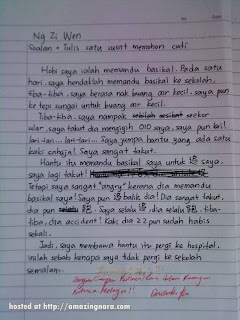 Ng Zi Wen
Soalan = Tulis satu surat memohon cuti
Hobi saya ialah memandu basikal. Pada satu
hari, saya hendaklah memandu basikal ke sekolah.
Tiba-tiba, saya berasa nak buang air kecil. saya pun
ke tepi sungai untuk buang air kecil.
Tiba-tiba, saya nampak seekor
ular. saya takut dia mengigih 010 saya. saya pun bri1
lari-lari... lari-lari... Saya jumpa hantu yang ada satu
kaki sahaja! Saya sangat takut.
Hantu itu memandu basikal saya untuk 追 saya.
saya lagi takut!
Tetapi saya sangat "angry" kerana dia memandu
basikal saya! Saya pun 追 balik dia! Dia sangat takut,
dia pun 跑. Saya selalu 追, dia selalu 跑. tiba-
tiba, dia accident! Kaki dia 22 pun sudah habis
sekali.
Jadi, saya membawa hantu itu pergi ke hospital.
inilah sebab kenapa saya tidak pergi ke sekolah
semalam.
hosted at http://amazingnara.com